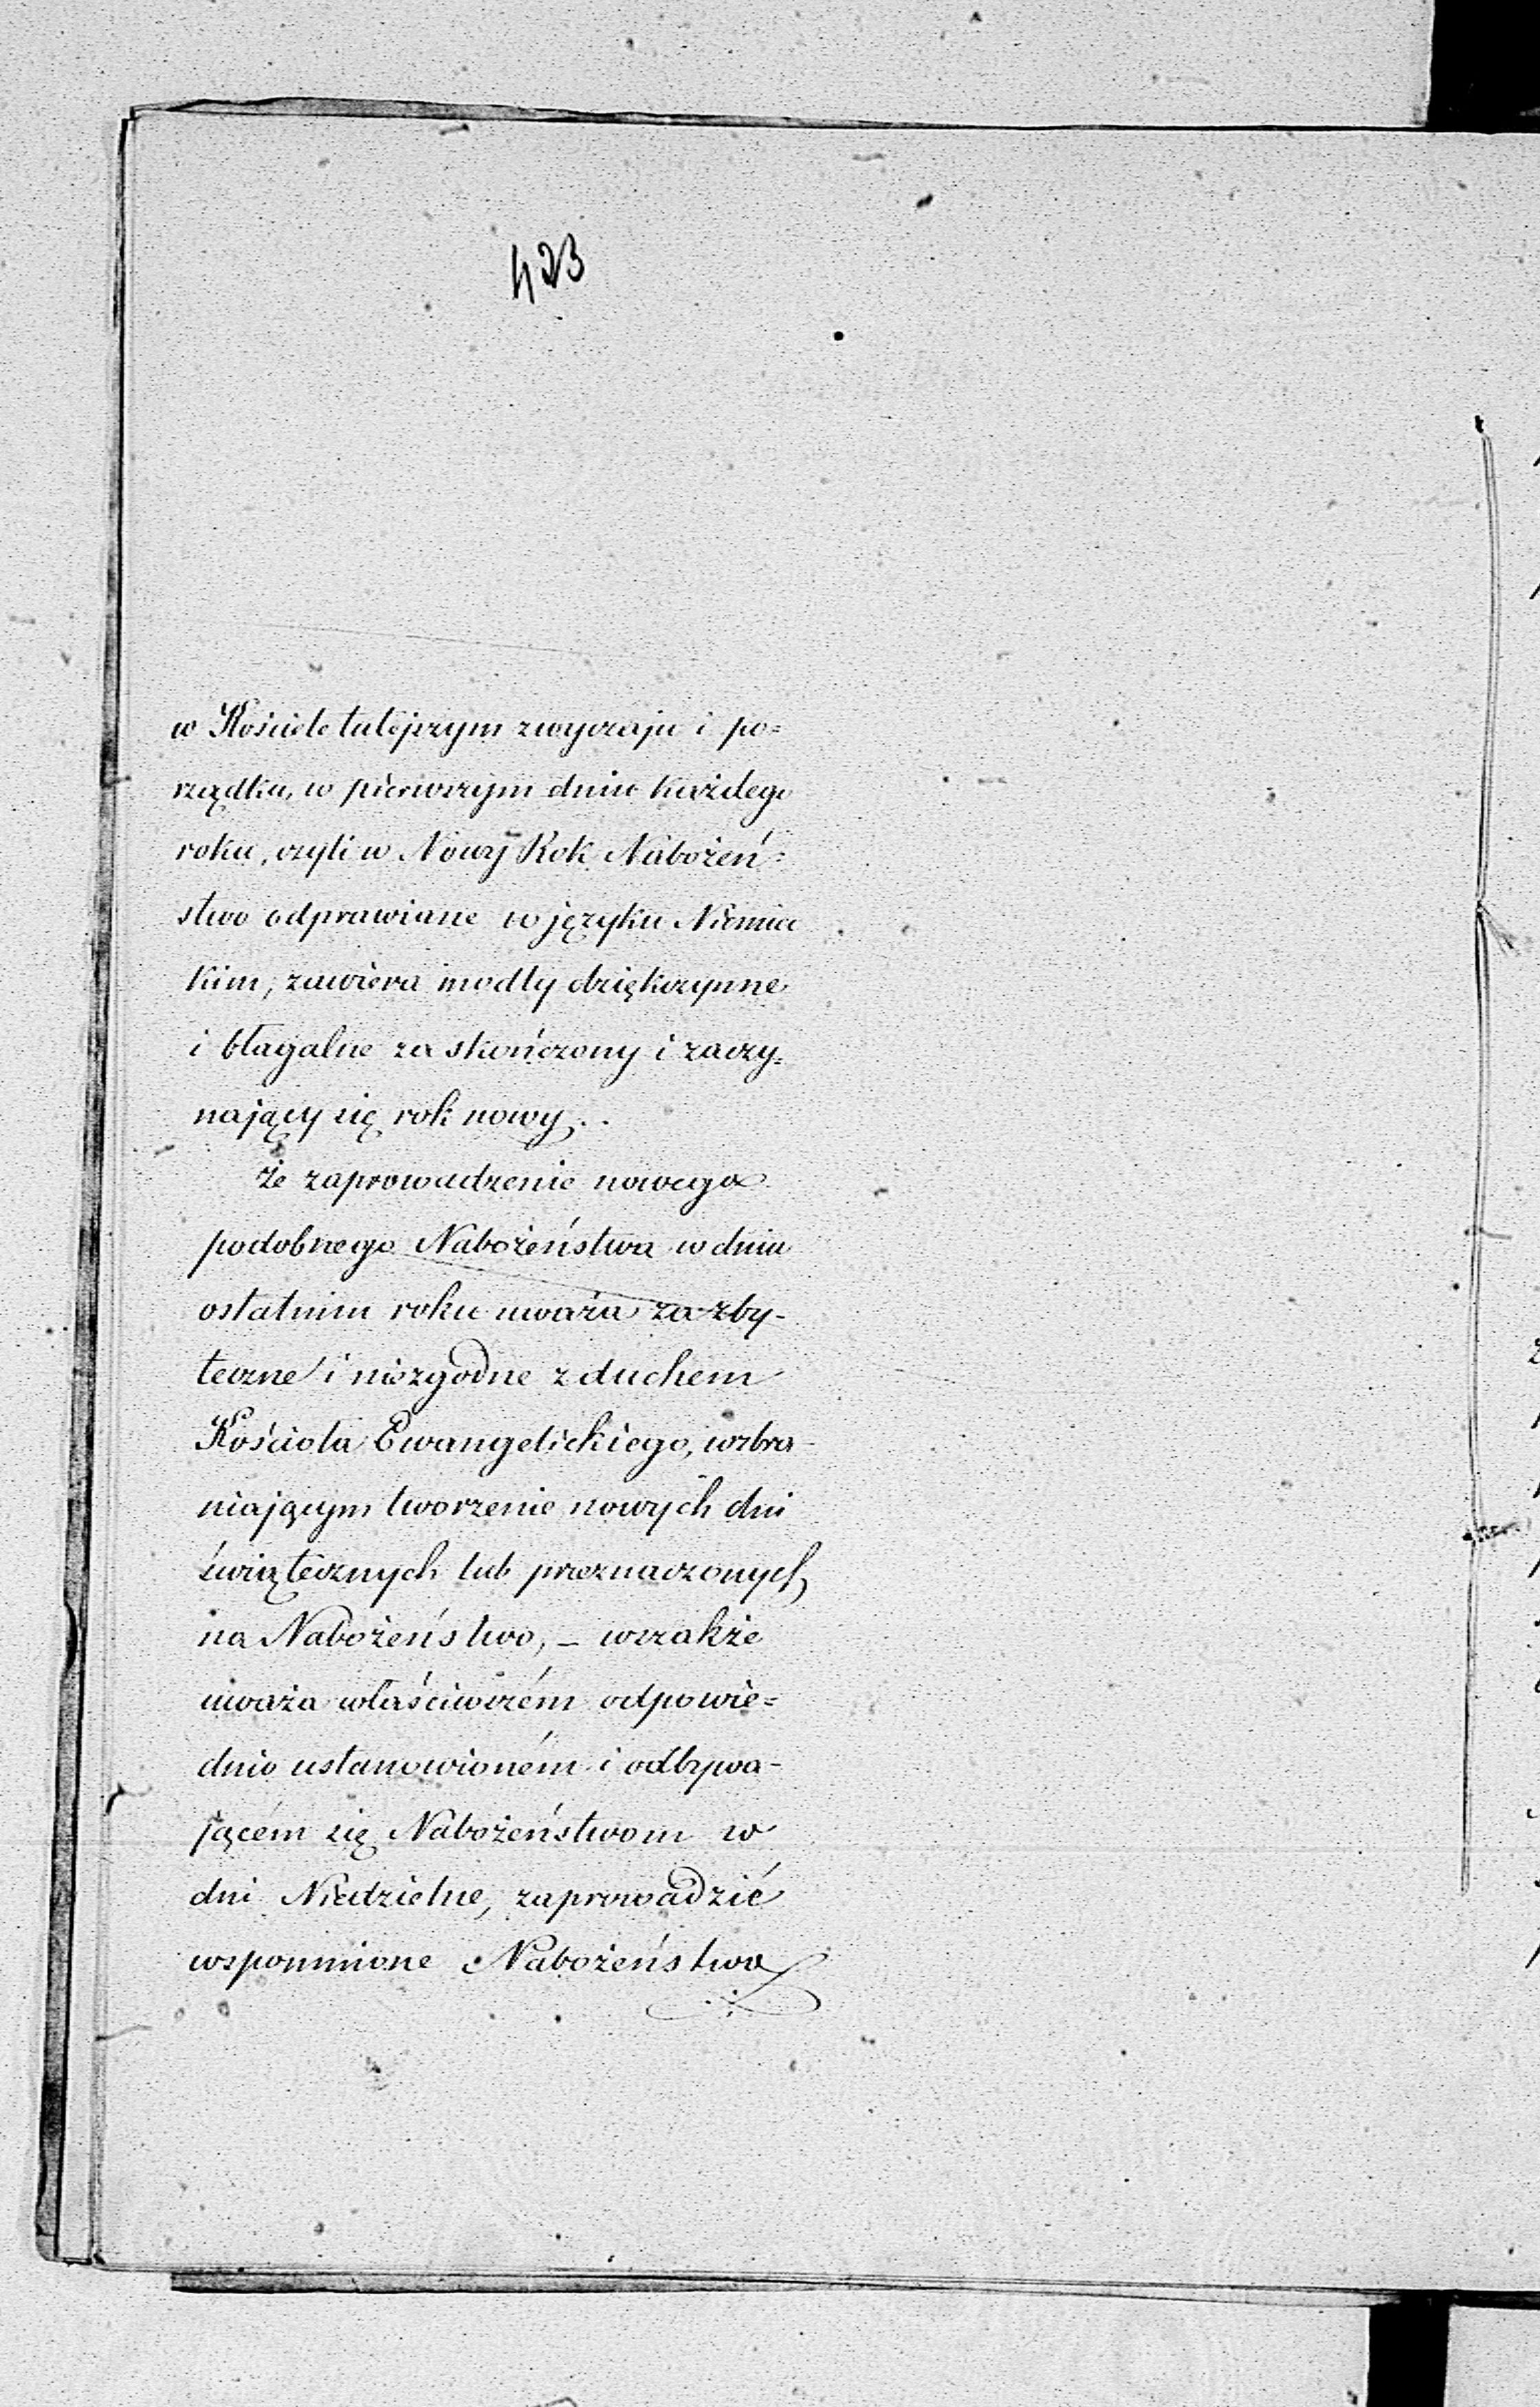 423
w Kościele tutejszym zwyczaju i po=
rządku, w pierwszym dniu każdego
roku, czyli w Nowy Rok Nabożeń=
stwo odprawiane w języku Niemiec
kim, zawiera modły dziękczynne
i błagalne za skończony i zaczy=
nający się rok nowy,..
że zaprowadzenie nowego
podobnego Nabożeństwa w dniu
ostatnim roku uważa za zby-
teczne i niezgodne z duchem
Kościoła Ewangelickiego, wzbra-
niającym tworzenie nowych dni
świątecznych lub przeznaczonych
na Nabożeństwo, – wszakże
uważa właściwszém odpowie=
dnio ustanowioném i odbywa-
jącém się Nabożeństwom w
dni Niedzielne, zaprowadzić
wspomnione Nabożeństwa